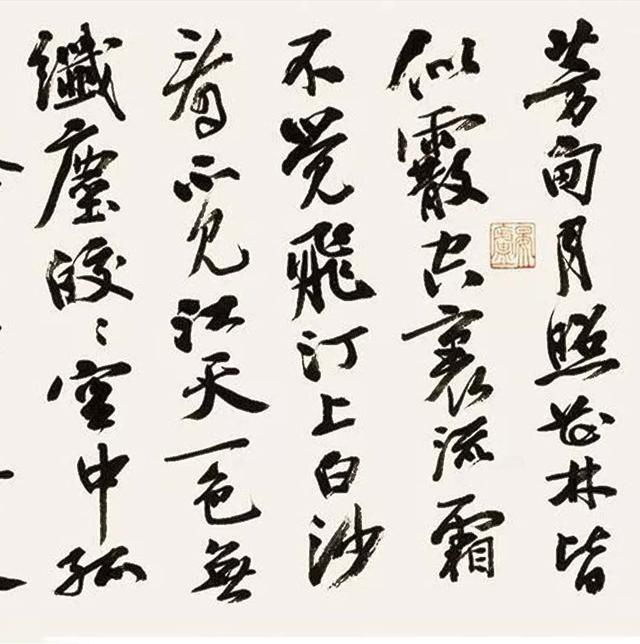 芳甸月照花林皆
似霰空裏流霜
不覺飛汀上白沙
看不見江天一色無
纖塵皎〻空中孤